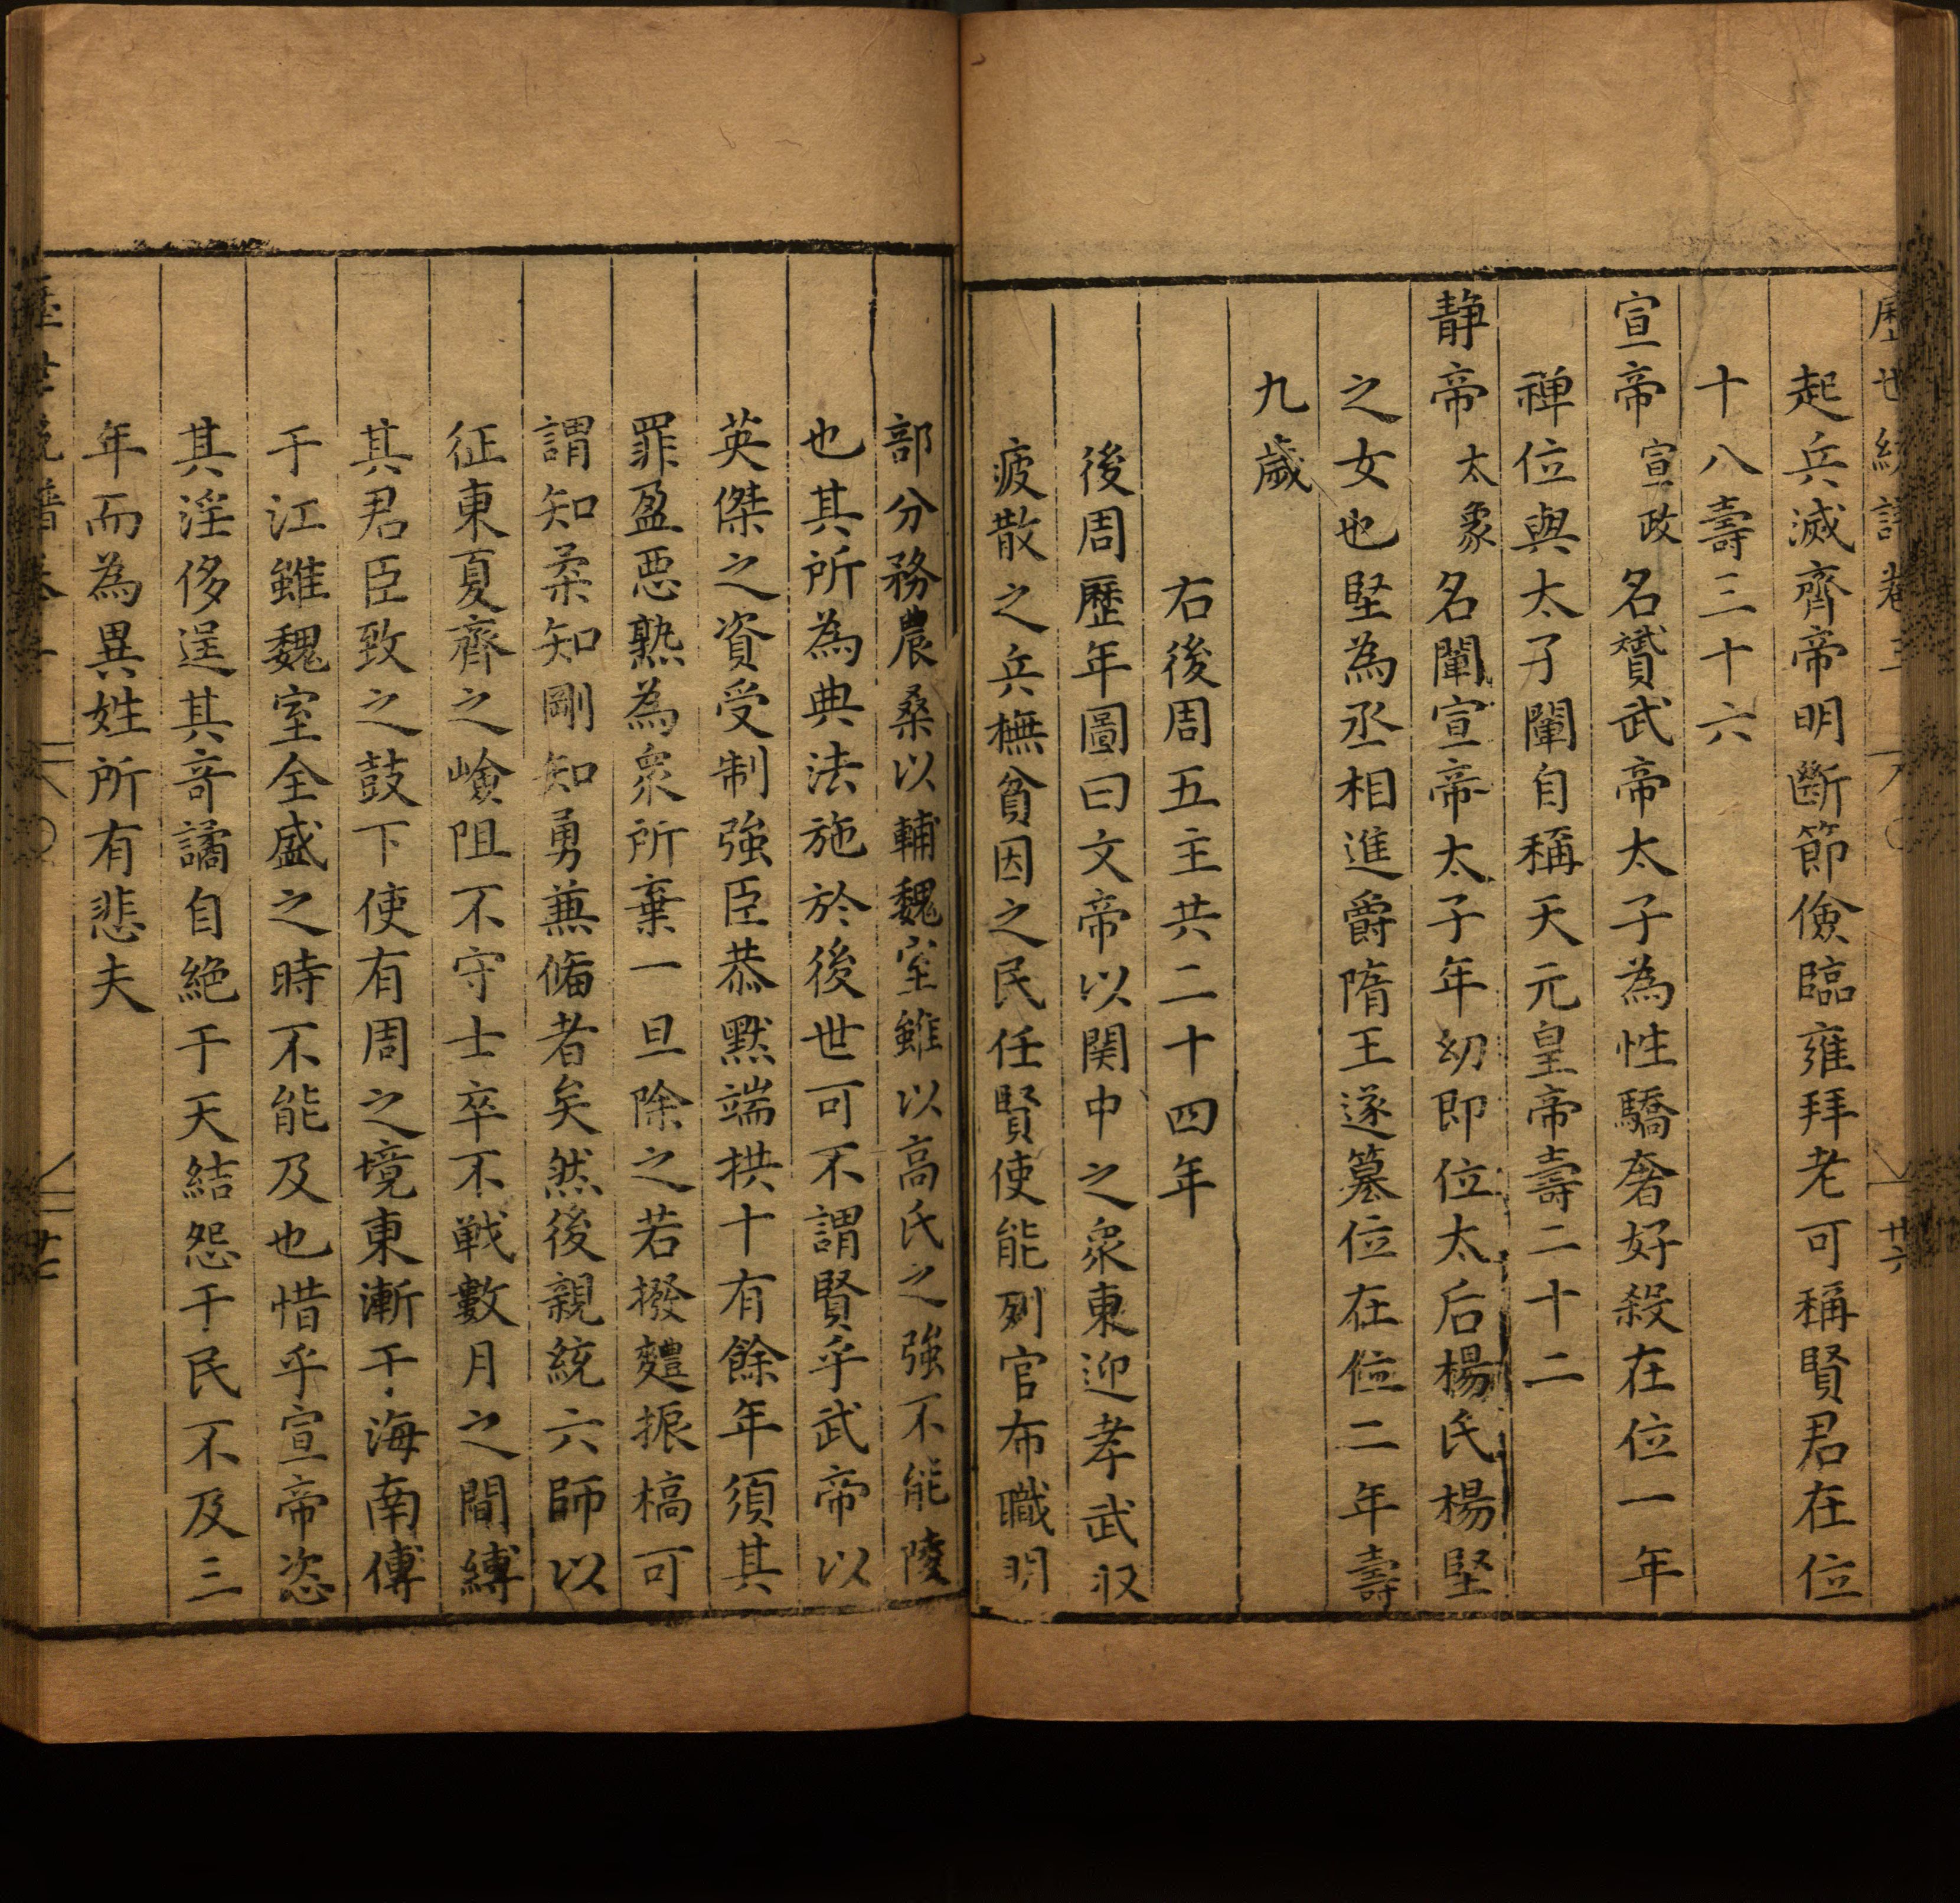 起兵滅齊帝明斷節儉臨雍拜老可稱賢君在位
十八壽三十六
宣帝宣政名贇武帝太子為性驕奢好殺在位一年
禅位與太子闡自稱天元皇帝壽二十二
静帝太象名闡宣帝太子年幼即位太后楊氏楊堅
之女也堅為丞相進爵隋王遂篡位在位二年壽
九歲
右後周五主共二十四年
後周歷年圖曰文帝以関中之衆東迎孝武収
疲散之兵橅貧因之民任賢使能列官布職明
部分務農桑以輔魏室雖以高氏之強不能陵
也其所為典法施於後世可不謂賢乎武帝以
英傑之資受制強臣恭默端拱十有餘年須其
罪盈悪熟為衆所棄一旦除之若撥麷振槁可
謂知柔知剛知勇蕪俻者矣然後親統六師以
征東夏齊之嶮阻不守士卒不戦數月之間縛
其君臣致之鼓下使有周之境東漸于海南傅
于江雖魏室全盛之時不能及也惜乎宣帝恣
其淫侈逞其竒譎自絶于天結怨于民不及三
年而為異姓所有悲夫